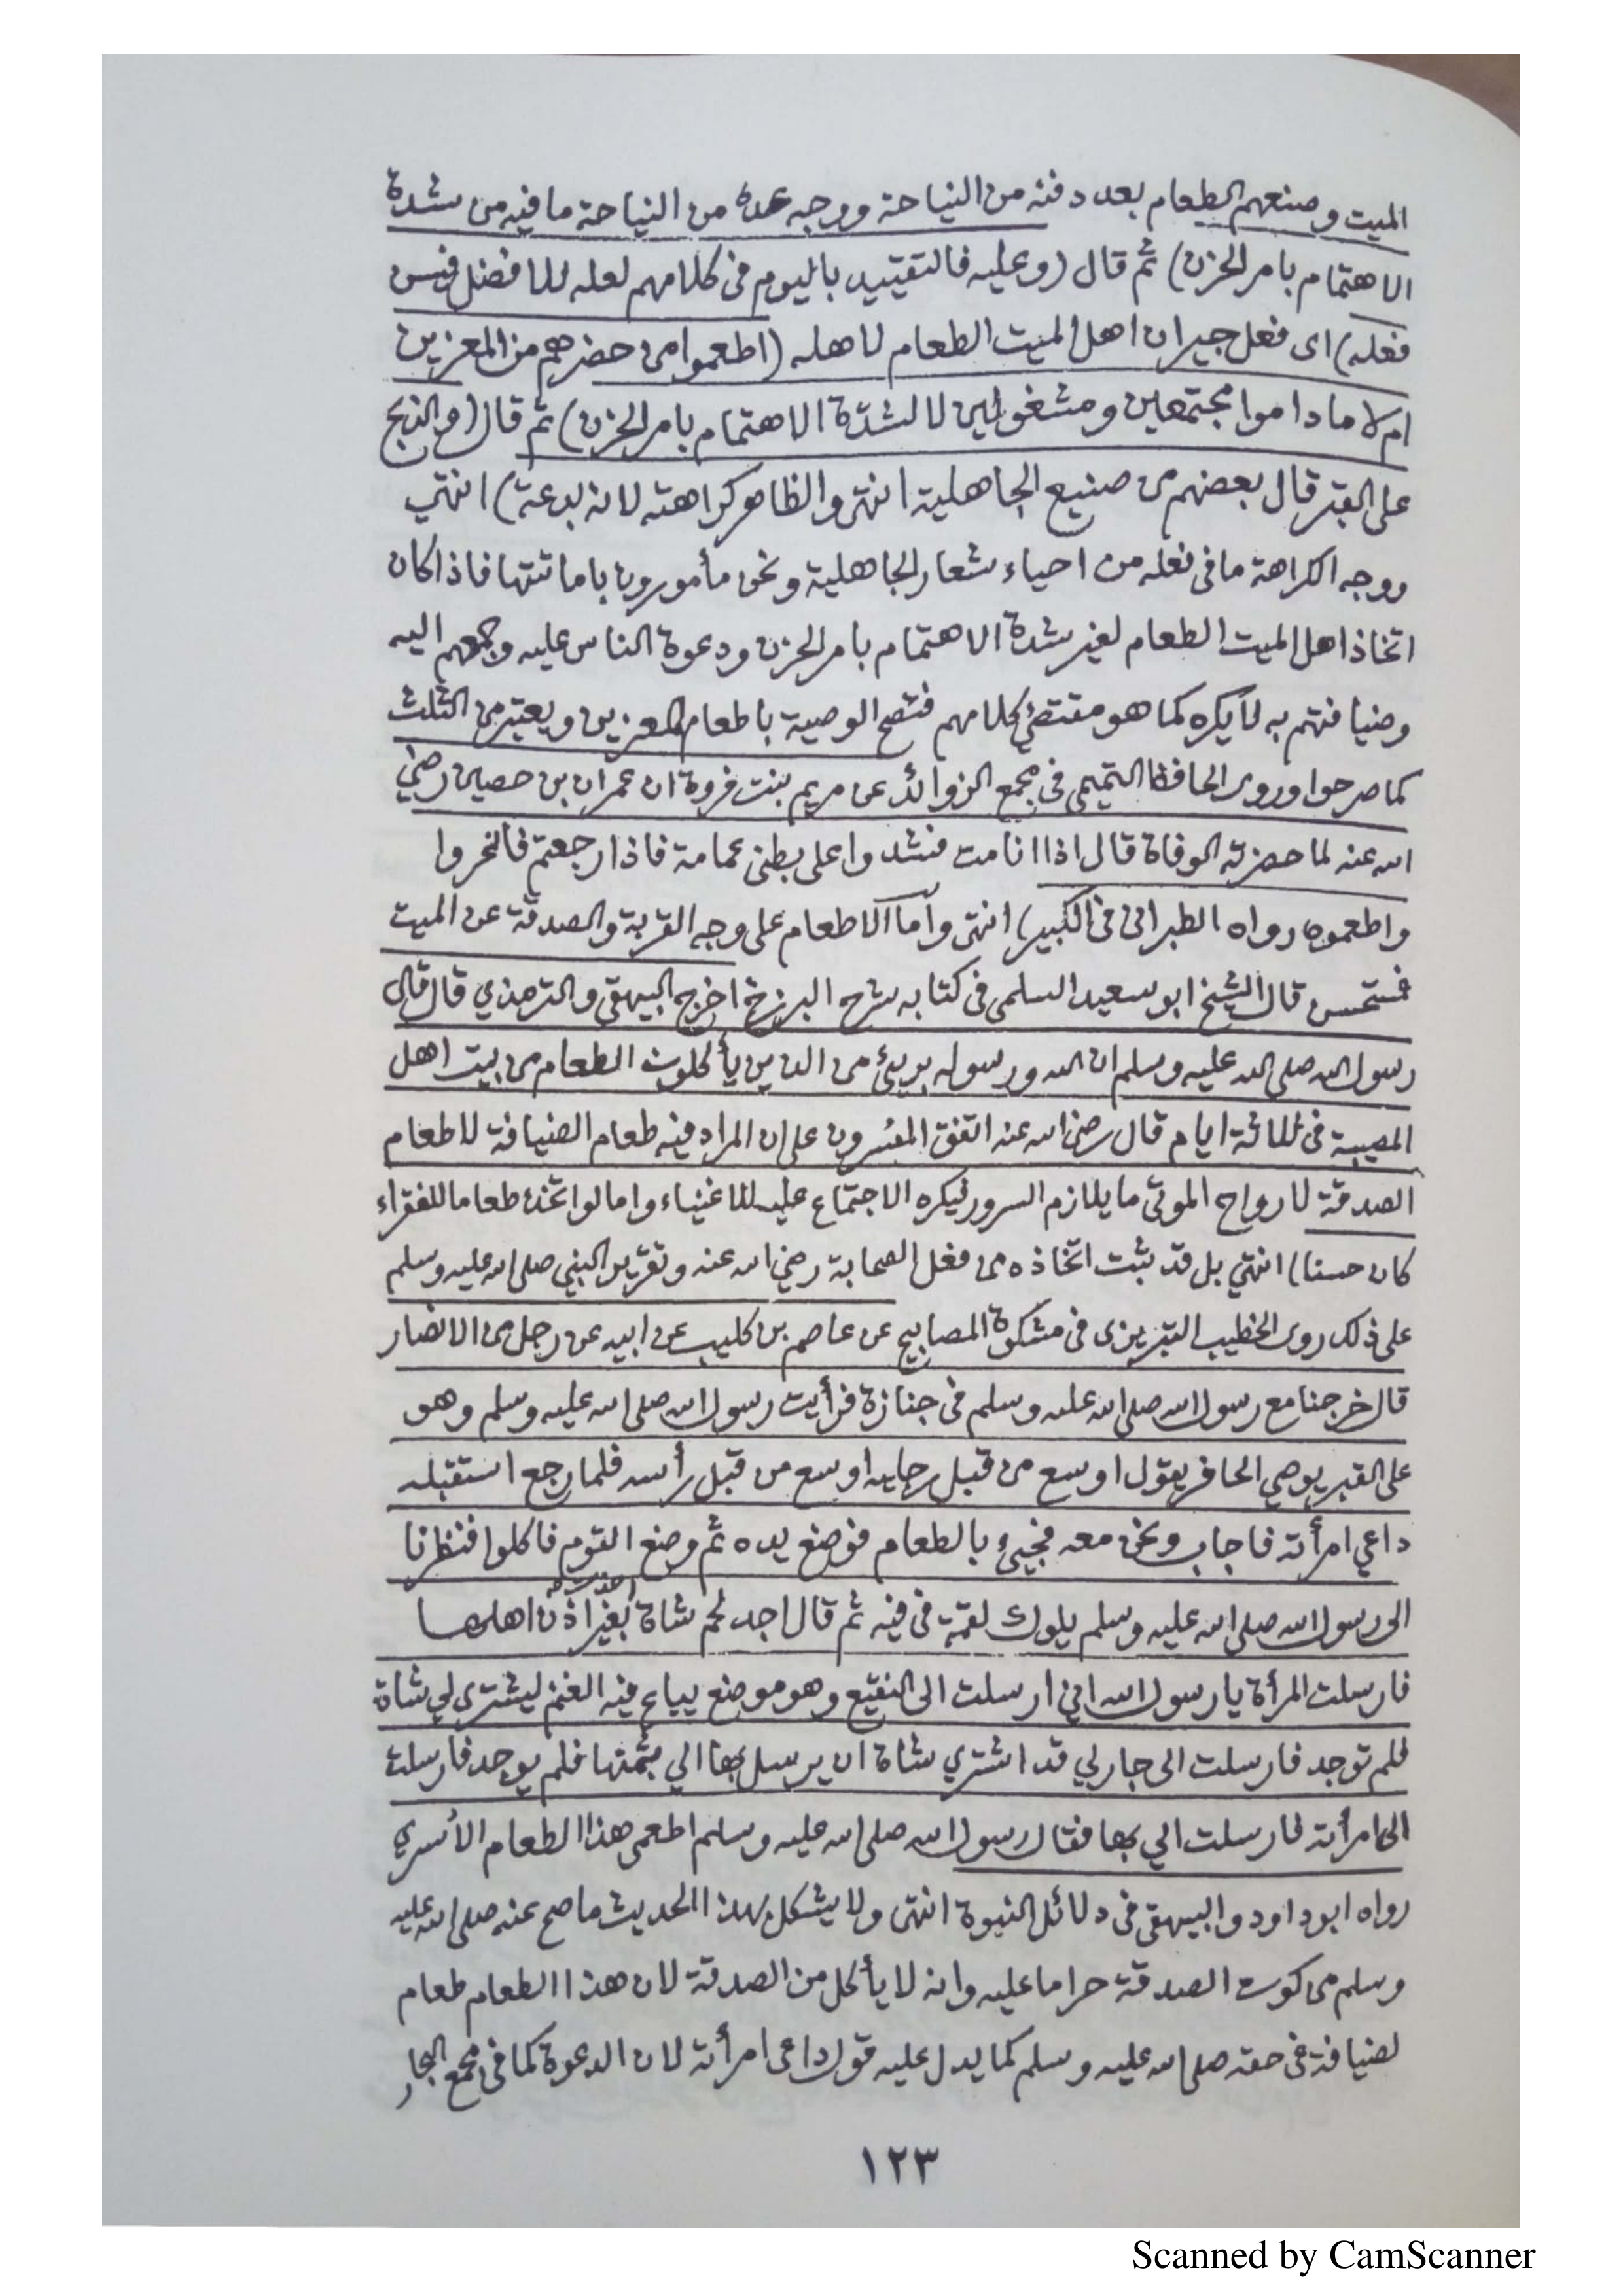 الميت وصنعهم الطعام بعد دفنه من النياحة ووجه عده من النياحة ما فيه من شدة
الاهتمام بامر الحزن) ثم قال (وعليه فالتقييد باليوم فى كلامهم لعله للافضل فيسن
فعله) اى فعل جيران اهل الميت الطعام لاهله (اطعموا من حضرهم من المعزين
ام لا ما داموا مجتمعين ومشغولين لا لشدة الاهتمام بامر الحزن) ثم قال (والذبح
على القبر قال بعضهم من صنيع الجاهلية انتهى والظاهر كراهته لانه بدعة) انتهي
ووجه الكراهة ما فى فعله من احياء شعار الجاهلية ونحن مأمورون باماتتها فاذا كان
اتخاذ اهل الميت الطعام لغير شدة الاهتمام بامر الحزن ودعوة الناس عليه وجمعهم اليه
وضيافتهم به لا يكره كما هو مقتضى كلامهم فتصح الوصية باطعام المعزين ويعتبر من الثلث
كما صرحوا وروى الحافظ التميمى فى مجمع الزوائد عن مريم بنت فروة ان عمران بن حصين رضي
الله عنه لما حضرته الوفاة قال اذا انا مت فشدوا على بطنى عمامة فاذا رجعتم فانحروا
واطعموه رواه الطبرانى فى الكبير) انتهى وأما الاطعام على وجه القربة والصدقة عن الميت
فمستحسن قال الشيخ ابو سعيد السلمى فى كتابه شرح البرزخ اخرج البيهقى والترمذي قال قال
رسول الله صلى الله عليه وسلم ان الله ورسوله بريئ من الذين يأكلون الطعام من بيت اهل
المصيبة فى ثلاثة ايام قال رضى الله عنه اتفق المفسرون على ان المراد فيه طعام الضيافة لا طعام
الصدقة لارواح الموتى ما يلازم السرور فيكره الاجتماع عليه للاغنياء واما لو اتخذ طعاما للفقراء
كان حسنا) انتهي بل قد ثبت اتخاذه من فعل الصحابة رضي الله عنه وتقرير النبي صلى الله عليه وسلم
على ذلك روى الخطيب التبريزى فى مشكوة المصابيح عن عاصم بن كليب عن ابيه عن رجل من الانصار
قال خرجنا مع رسول الله صلى الله عليه وسلم فى جنازة فرأيت رسول الله صلى الله عليه وسلم وهو
على القبر يوصي الحافر يقول اوسع من قبل رجليه اوسع من قبل رأسه فلما رجع استقبله
داعي امرأته فاجاب ونحن معه فجيئ بالطعام فوضع يده ثم وضع القوم فاكلوا فنظرنا
الى رسول الله صلى الله عليه وسلم يلوك لقمة فى فيه ثم قال اجد لحم شاة اخذت بغير اذن اهلها
فارسلت المرأة يا رسول الله اني ارسلت الى النقيع وهو موضع يباع فيه الغنم ليشترى لي شاة
فلم توجد فارسلت الى جار لي قد اشتري شاة ان يرسل بها الي بثمنها فلم يوجد فارسلت
الى امرأته فارسلت الي بها فقال رسول الله صلى الله عليه وسلم اطعمى هذا الطعام الأسري
رواه ابو داود والبيهقى فى دلائل النبوة انتهى ولا يشكل بهذا الحديث ما صح عنه صلى الله عليه
وسلم من كون الصدقة حراما عليه وانه لا يأكل من الصدقة لان هذا الطعام طعام
لضيافة فى حقه صلى الله عليه وسلم كما يدل عليه قوله داعى امرأته لان الدعوة كما فى مجمع البحار
١٢٣
Scanned by CamScanner